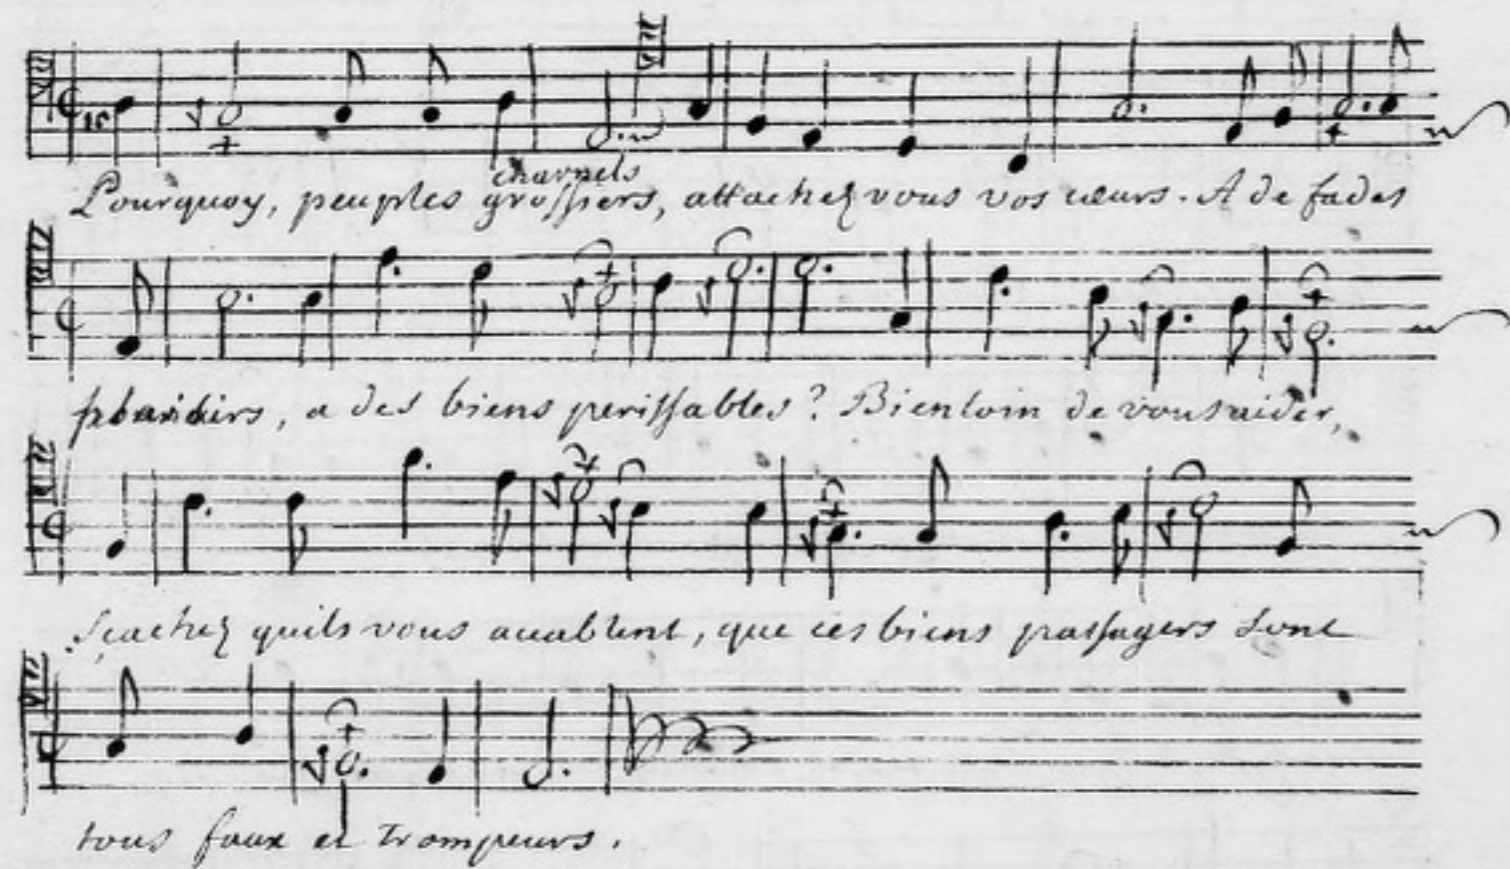 charnels
Pourquoy, peuples grossiers, attachez vous vos cœurs. A de fades
plaisirs, a des biens perissables? Bien loin de vous aider,
Scachez quils vous accablent, que ces biens passagers sont
tous faux et trompeurs.